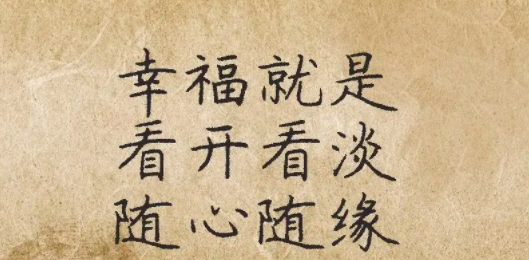 幸福就是
看开看淡
随心随缘